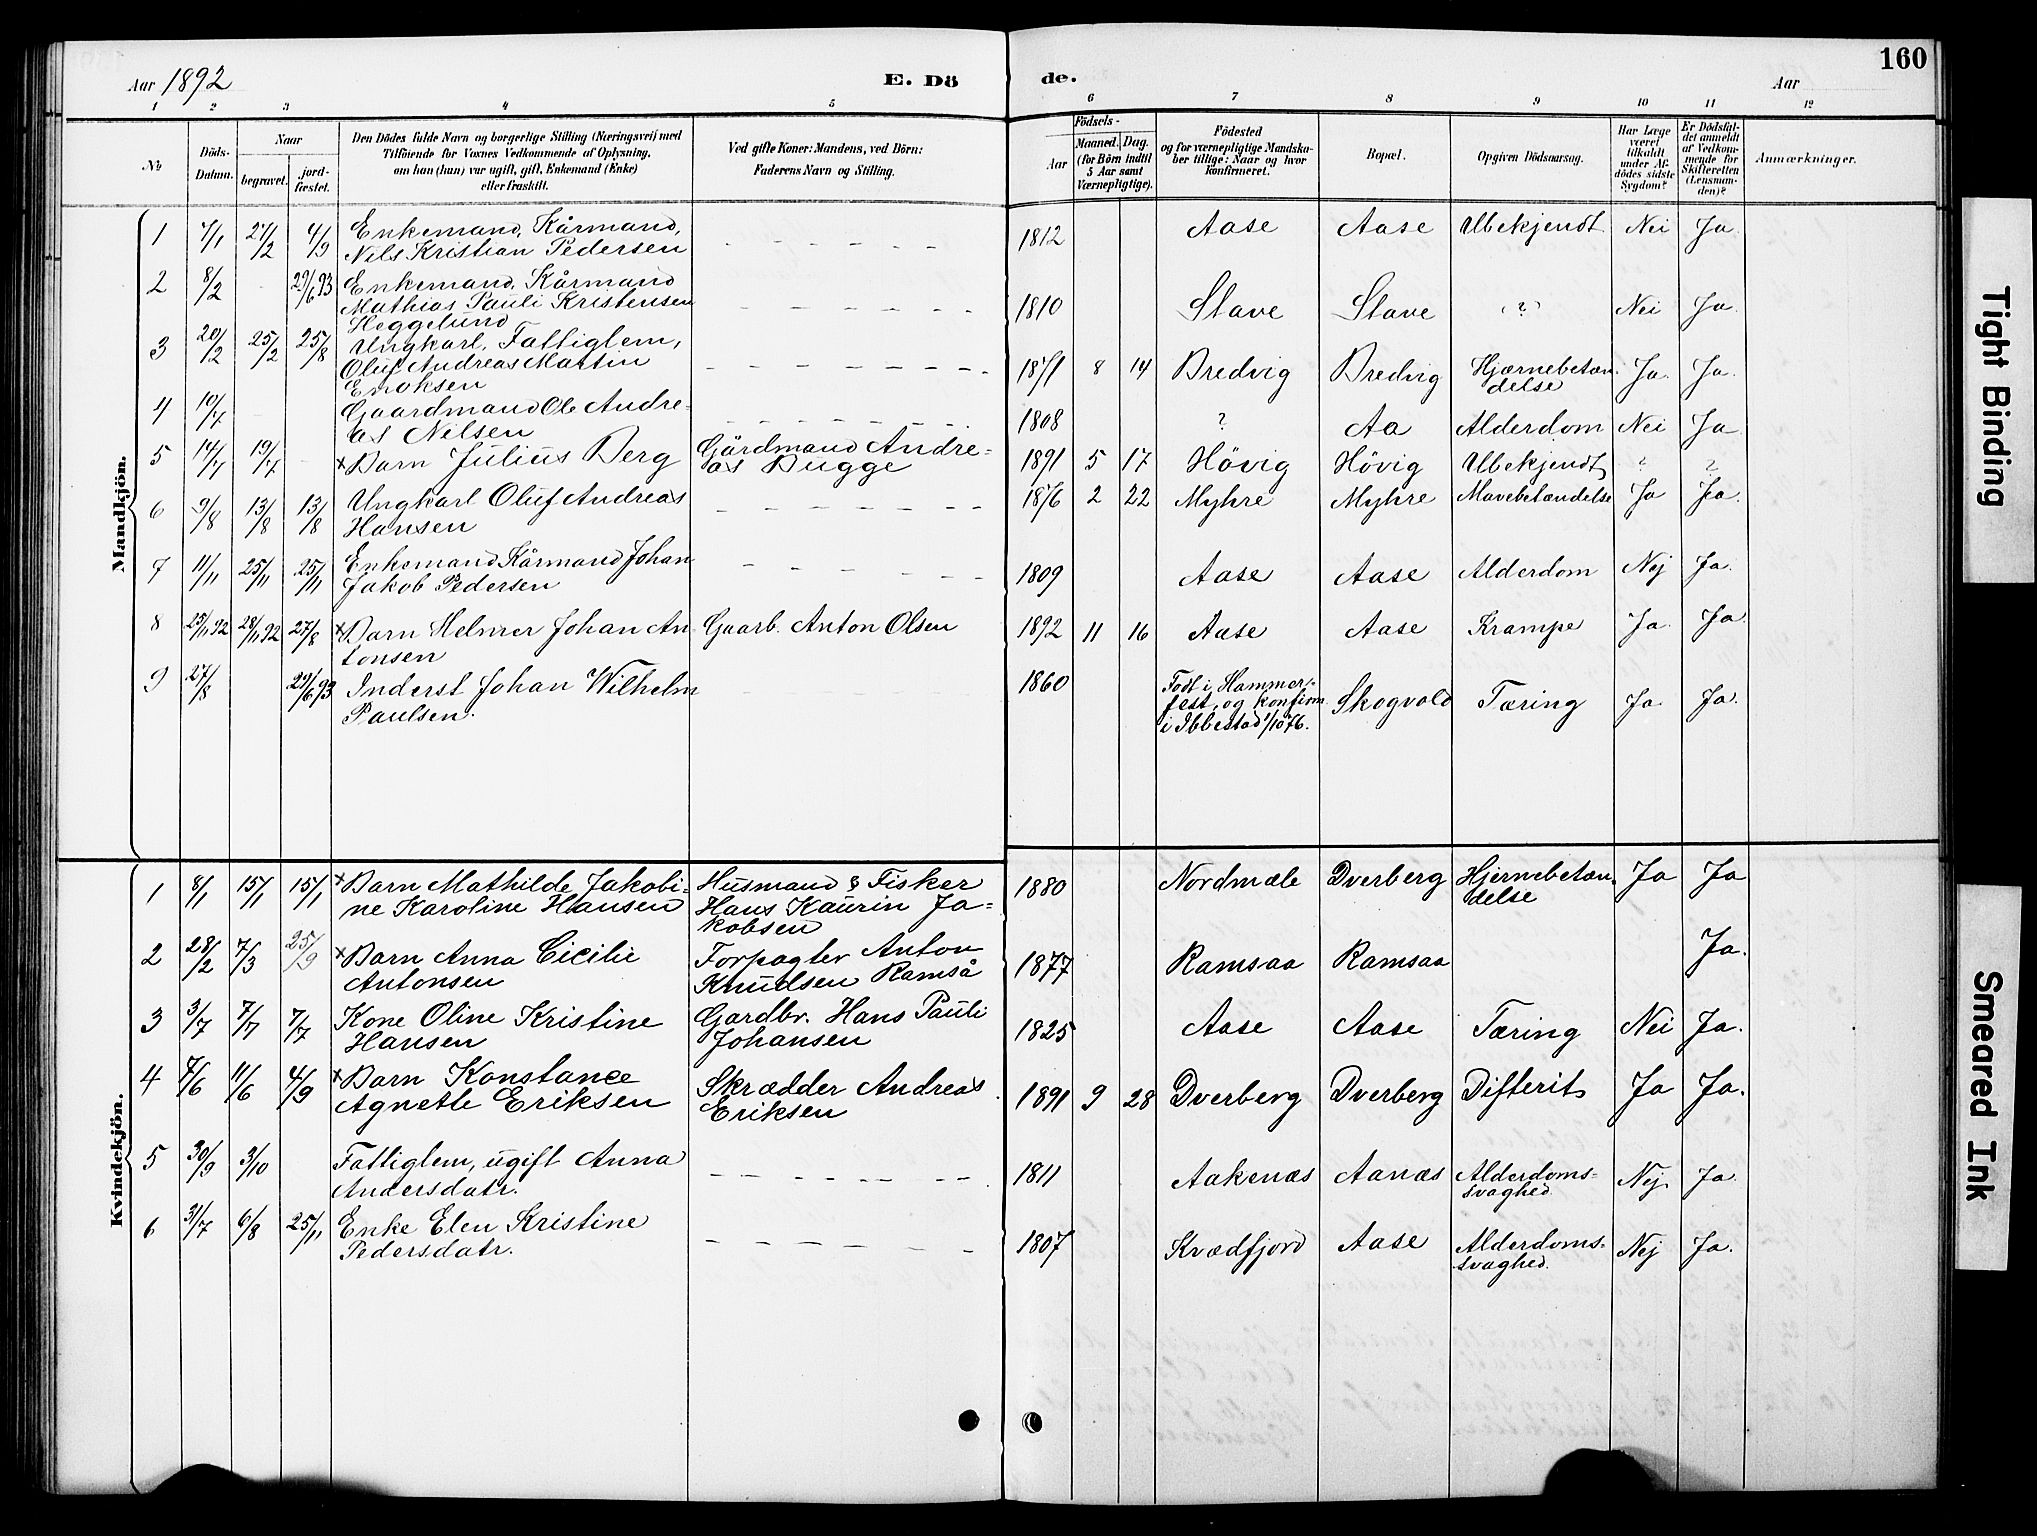 160
Aar 1892 E. Dö de. Aar
1 2 3 4 5 6 7 8 9 10 11 12
No Döds-Datum. Naar begravet. jordfæstet. Den Dödes fulde Navn og borgerlige Stilling (Næringsvei) med Tilföiende for Voxnes Vedkommende af Oplysning, om han (hun) var ugift, gift, Enkemand (Enke) eller fraskilt. Ved gifte Koner: Mandens, ved Börn: Faderens Navn og Stilling. Födsels- Aar Maaned. Dag. (for Börn indtil 5 Aar samt Værnepligtige). Födested og for værnepligtige Mandskaber tillige: Naar og hvor konfirmeret. Bopæl. Opgiven Dödsaarsag. Har Læge været tilkaldt under Afdödes sidste Sygdom? Er Dödsfaldet anmeldt af Vedkommende for Skifteretten (Lensmanden)? Anmærkninger.
Mandkjön.
1 7/1 27/2 4/9 Enkemand, Kårmand, Nils Kristian Pedersen - - - - - - 1812 Aase Aase Ubekjendt Nei Ja
2 8/2 - 29/6 93 Enkemand, Kårmand Mathias Pauli Kristensen Heggelund - - - - - - 1810 Stave Stave (?) Nei Ja.
3 20/2 25/2 25/8 Ungkarl, Fattiglem, Oluf Andreas Martin Enoksen - - - - - - 1871 8 14 Bredvig Bredvig Hjærnebetændelse Ja. Ja.
4 10/4 - - Gaardmand Ole Andreas Nilsen - - - - - - 1808 ? Aa Alderdom Nei Ja
5 14/4 19/4 - × Barn Julius Berg Gårdmand Andreas Bugge 1891 5 17 Hövig Hövig Ubekjendt ? ?
6 9/8 13/8 13/8 Ungkarl Oluf Andreas Hansen - - - - - - 1876 2 22 Myhre Myhre Mavebetændelse Ja Ja.
7 11/11 25/11 25/11 Enkemand Kårmand Johan Jakob Pedersen - - - - - - 1809 Aase Aase Alderdom Nej Ja.
8 25/11 92 28/11 92 27/8 × Barn Helmer Johan Antonsen Gaarb. Anton Olsen 1892 11 16 Aase Aase Krampe Ja. Ja.
9 27/8 29/6 93 Inderst Johan Wilhelm Paulsen. 1860 Födt i Hammerfest, og konfirm. i Ibbestad 1/10 76. Skogvold Tæring Ja. Ja.
Kvindekjön.
1 8/1 15/1 15/1 × Barn Mathilde Jakobine Karoline Hansen Husmand & Fisker Hans Kaurin Jakobsen 1880 Nordmæle Dverberg Hjernebetændelse Ja Ja
2 28/2 7/3 25/9 × Barn Anna Cicilie Antonsen Forpagter Anton Knudsen Ramså 1877 Ramsaa Ramsaa Ja.
3 3/7 7/7 7/7 Kone Oline Kristine Hansen Gardbr. Hans Pauli Johansen 1825 Aase Aase Tæring Nei Ja.
4 7/6 11/6 4/9 × Barn Konstance Agnethe Eriksen Skrædder Andreas Eriksen 1891 9 28 Dverberg Dverberg Difterit Ja Ja.
5 30/9 3/10 Fattiglem, ugift Anna Andersdatr. - - - - - - 1811 Aakenæs Aanæs Alderdomssvaghed. Nej. Ja.
6 31/7 6/8 25/11 Enke Elen Kristine Pedersdatr. - - - - - - 1807 Kvædfjord Aase Alderdomssvaghed. Nej Ja.
Tight Binding
Smeared Ink